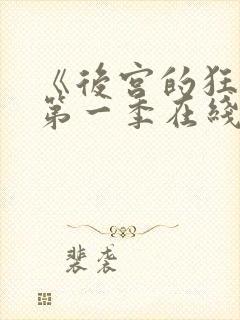 《後宮的狂
第一季在綫
裴袭